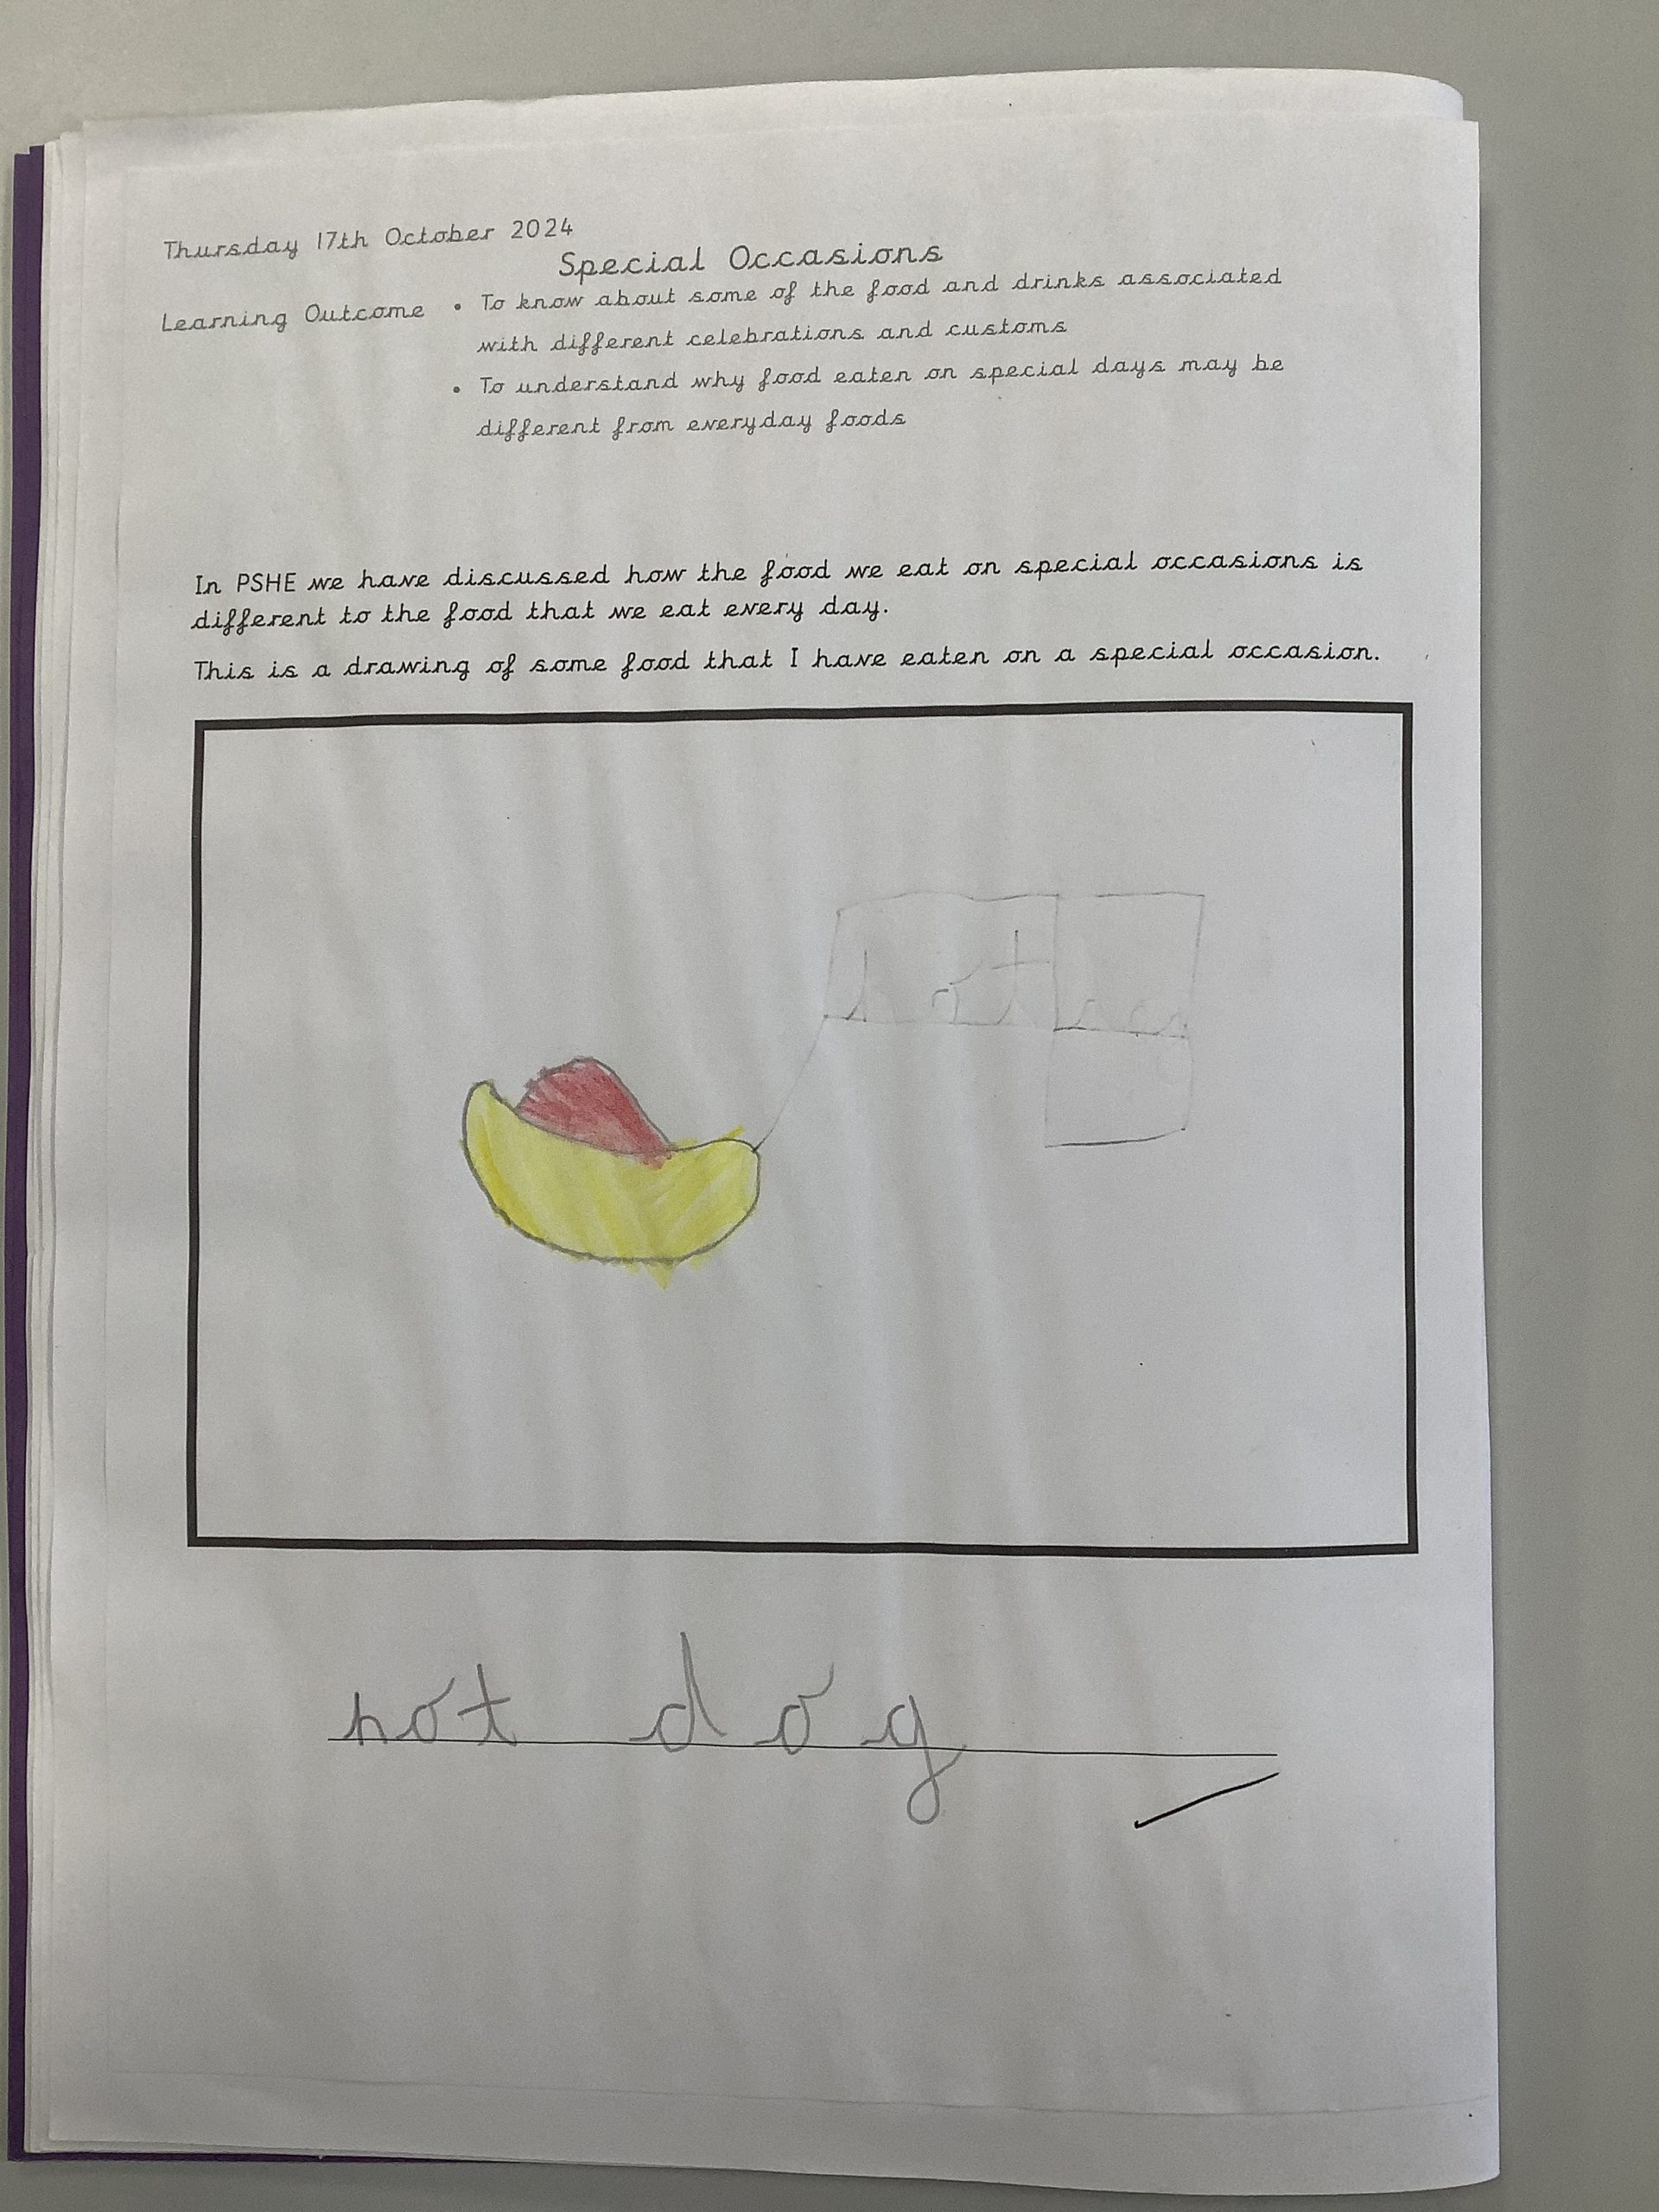 Thursday 17th October 2024
Special Occasions
Learning Outcome • To know about some of the food and drinks associated
with different celebrations and customs
• To understand why food eaten on special days may be
different from everyday foods
In PSHE we have discussed how the food we eat on special occasions is
different to the food that we eat every day.
This is a drawing of some food that I have eaten on a special occasion.
hot
hot dog